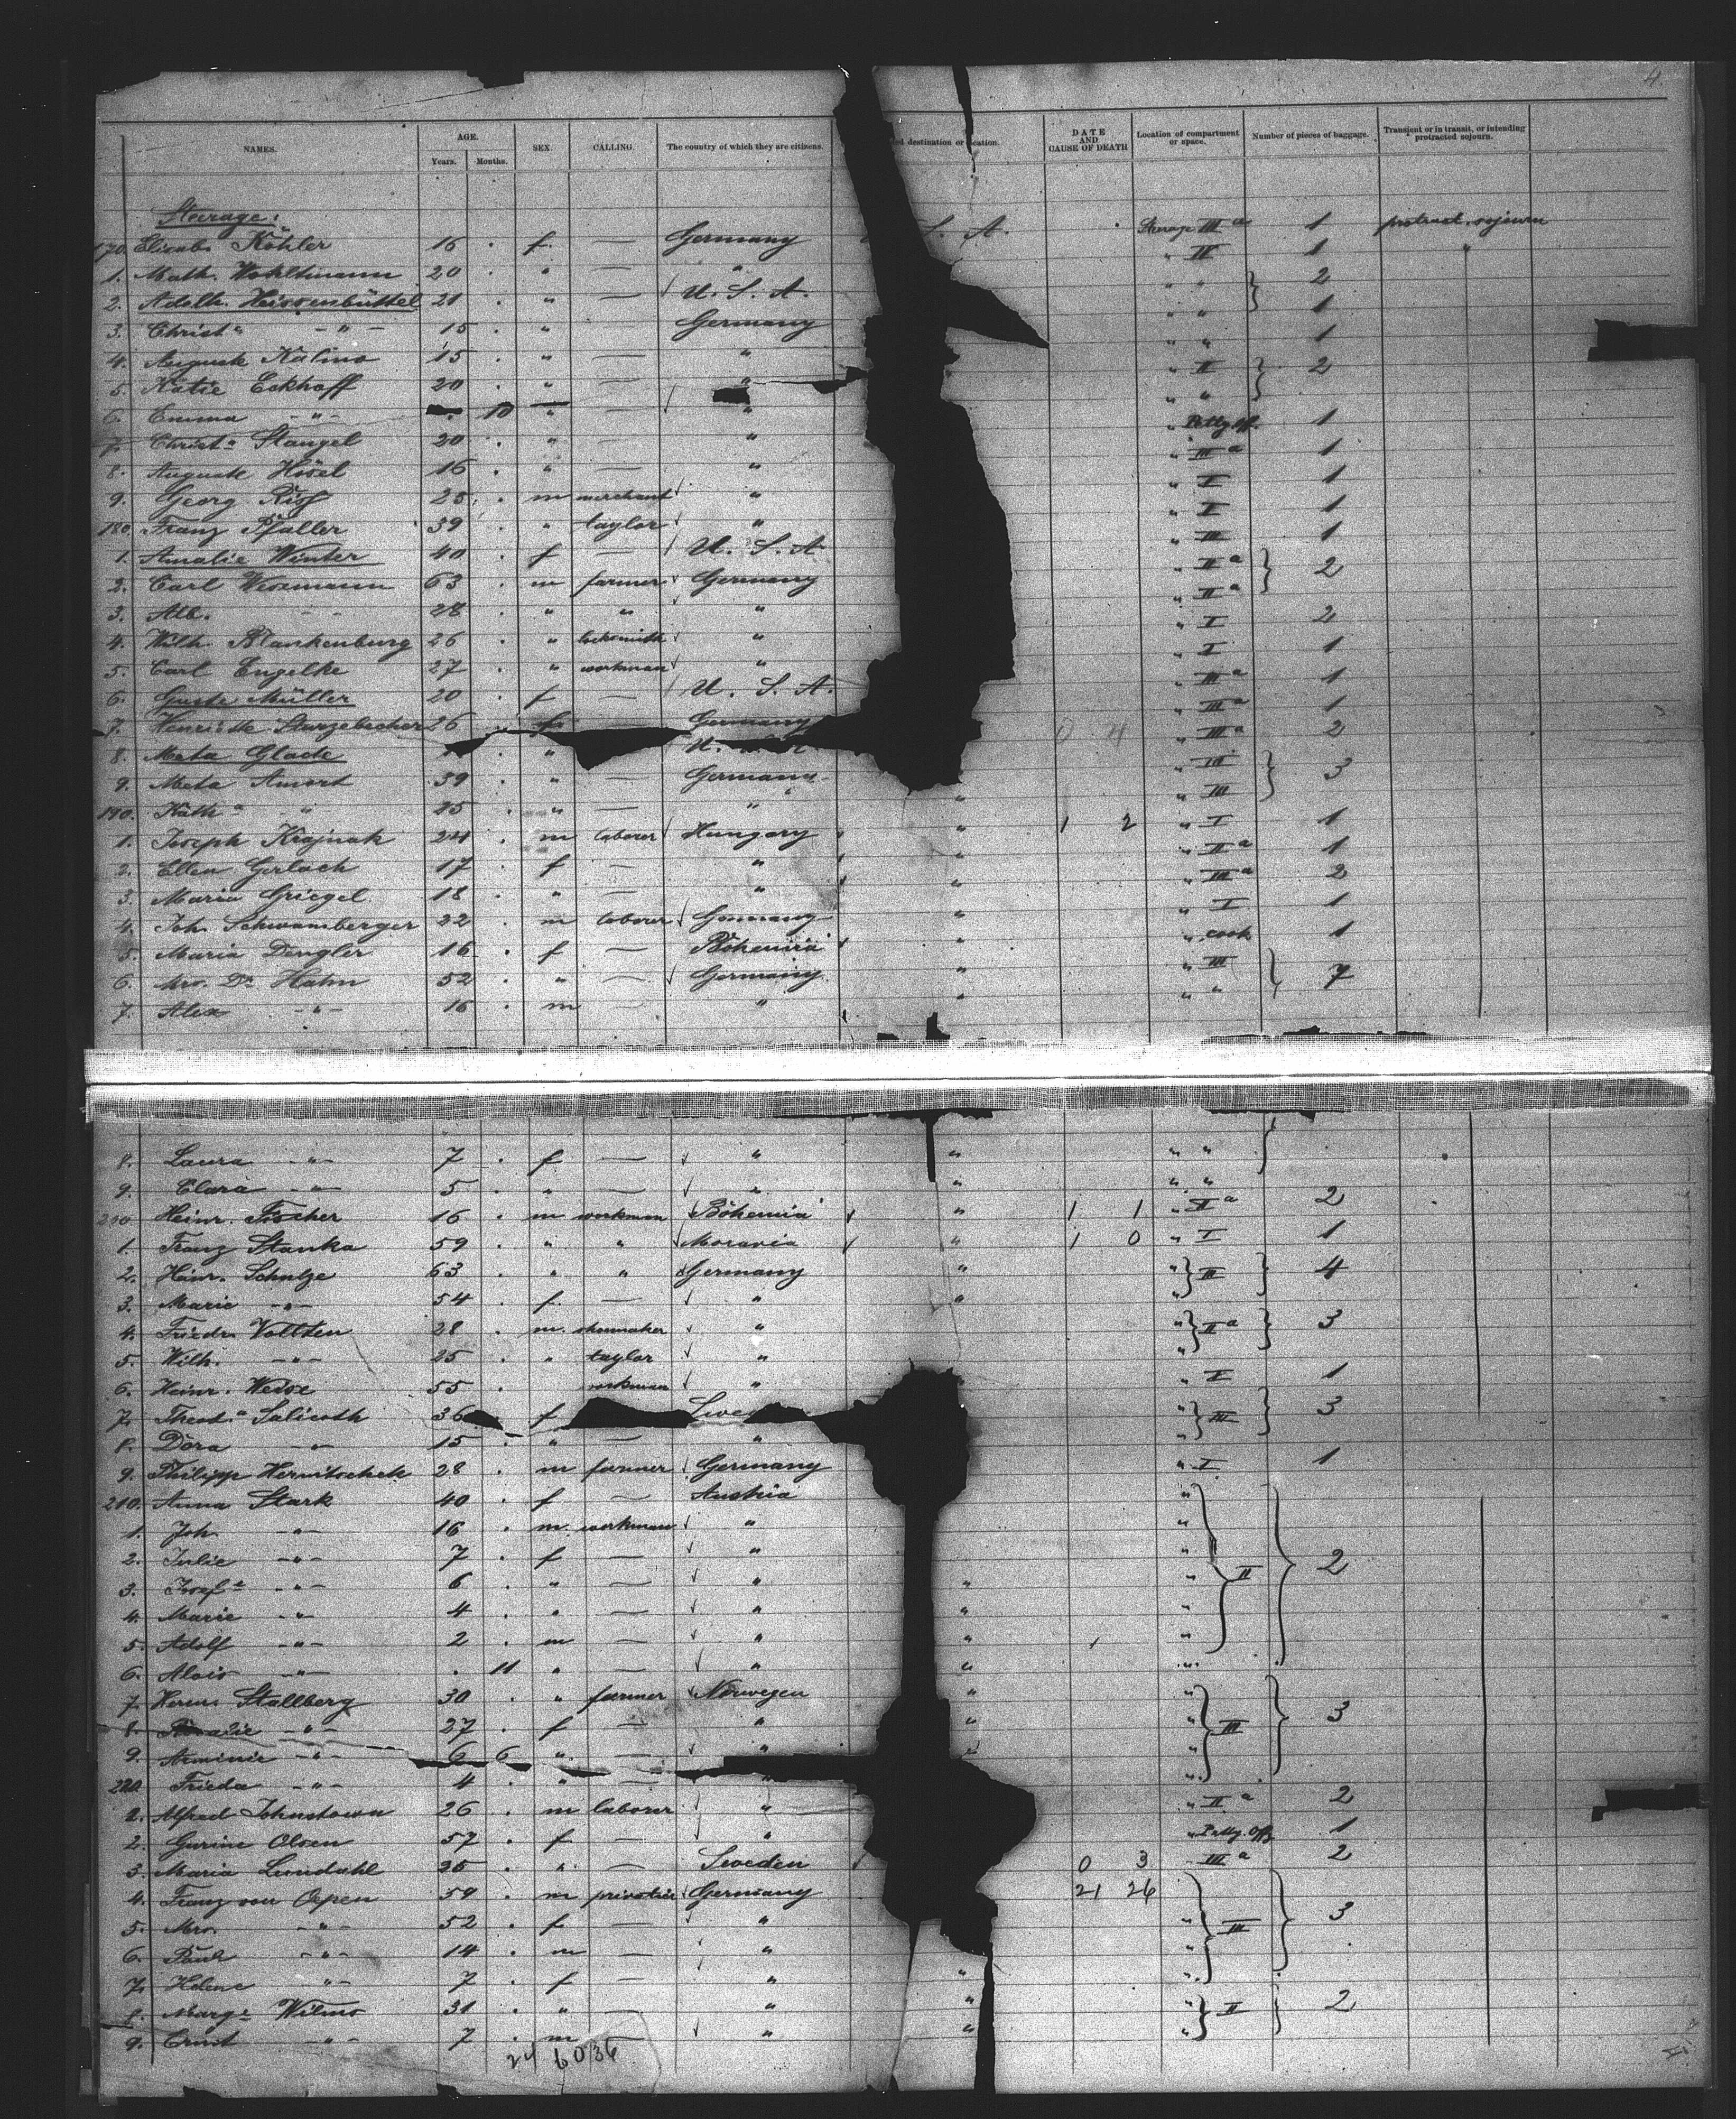 4.
NAMES. AGE. Years. Months. SEX. CALLING. The country of which they are citizens. destination or location. DATE AND CAUSE OF DEATH Location of compartment or space. Number of pieces of baggage. Transient or in transit, or intending protracted sojourn.
Steerage:
170. Elisab. Köhler 16 . f. — Germany S. A. Steerage III a 1 protract. sojourn
1. Math. Wohltmann 20 . " " " II 1 "
2. Adelh. Heissenbüttel 21 . " — U. S. A. " " 2
3. Christ a -"- 15 . " Germany " " 1
4. Auguste Kalino 15 . " — " " " 1
5. Kätie Eckhoff 20 . " — " " II 2
6. Emma -"- . 10 " — " " "
7. Christ a Stangel 20 . " — " " Petty off. 1
8. Auguste Hösel 16 . " — " " III a 1
9. Georg 25 . m merchant " " I 1
180. Franz Pfaller 39 . " taylor " " I 1
1. Amalie Winter 40 . f — U. S. A. " III 1
2. Carl Wessmann 63 . m farmer Germany " II a 2
3. Alb. - - 28 . " " " " II a
4. Wilh. Blankenburg 26 . " locksmith " " I 2
5. Carl Engelke 27 . " workman " " I 1
6. Guste Müller 20 . f — U. S. A. " III a 1
7. Henriette Stanzebecher 26 . f Germany " III a 1
8. Meta Glade " U. 0 4 " III a 2
9. Meta Amort 39 . " — Germany " III 3
190. Kath a " 25 . " — " " " III
1. Joseph Krajnak 24 . m laborer Hungary " 1 2 " I 1
2. Ellen Gerlach 17 . f — " " " II a 1
3. Maria Griegel 18 . " — " " " III a 2
4. Joh. Schwamberger 22 . m laborer Germany " " I 1
5. Maria Dengler 16 . f — Bohemia " " cook 1
6. Mrs. Dr. Hahn 52 . " — Germany " " III 7
7. Alex -"- 16 . m " " " "
8. Laura -"- 7 . f — " " " "
9. Clara -"- 5 . " — " " " "
200 Heinr. Fischer 16 . m workman Bohemia " 1 1 " II a 2
1. Franz Stanka 59 . " " Moravia " 1 0 " I 1
2. Heinr. Schulze 63 . " " Germany " " III 4
3. Marie -"- 54 . f. — " " "
4. Friedr. Vollten 28 . m. shoemaker " " II a 3
5. Wilh. -"- 25 . " taylor " "
6. Heinr. Weise 55 . workman " " I 1
7. Theod a Salicoth 36 f Swe " III 3
8. Dora -"- 15 . " — " "
9. Philipp Hernitschek 28 . m farmer Germany " I 1
210. Anna Stark 40 . f — Austria " II 2
1. Joh. -"- 16 . m. workman " "
2. Julie -"- 7 . f — " "
3. Josef a -"- 6 . " — " " "
4. Marie -"- 4 . " — " " "
5. Adolf -"- 2 . m — " " "
6. Alois -"- . 11 " — " " "
7. Herm. Stallberg 30 . " farmer Norwegen " " III 3
8. -"- 27 . f — " " "
9. Arminie -"- 6 6 " " "
220. Frieda -"- 4 . " — " "
2. Alfred Johnstown 26 . m laborer " " II a 2
2. Gurine Olsen 57 . f — " " Petty Off. 1
3. Maria Lundahl 25 . " — Sweden 0 3 III a 2
4. Franz von Oepen 59 . m privatier Germany 21 26 III 3
5. Mrs. -"- 52 . f — " "
6. Paul -"- 14 . m — " "
7. Helene "- 7 . f — " " "
8. Marg a Wilms 31 . " — " " " II 2
9. Ernst -"- 7 . m — " " "
24 60/36